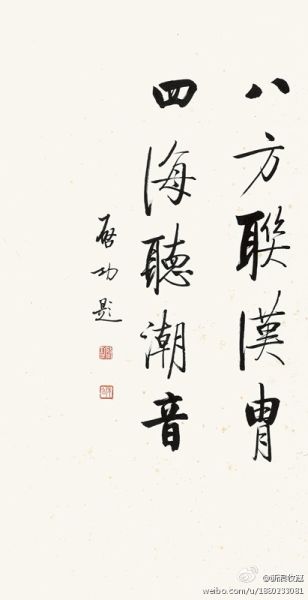 八方聯漢胄
四海聽潮音
啓功題
@新浪收藏
weibo.com/u/1880233081